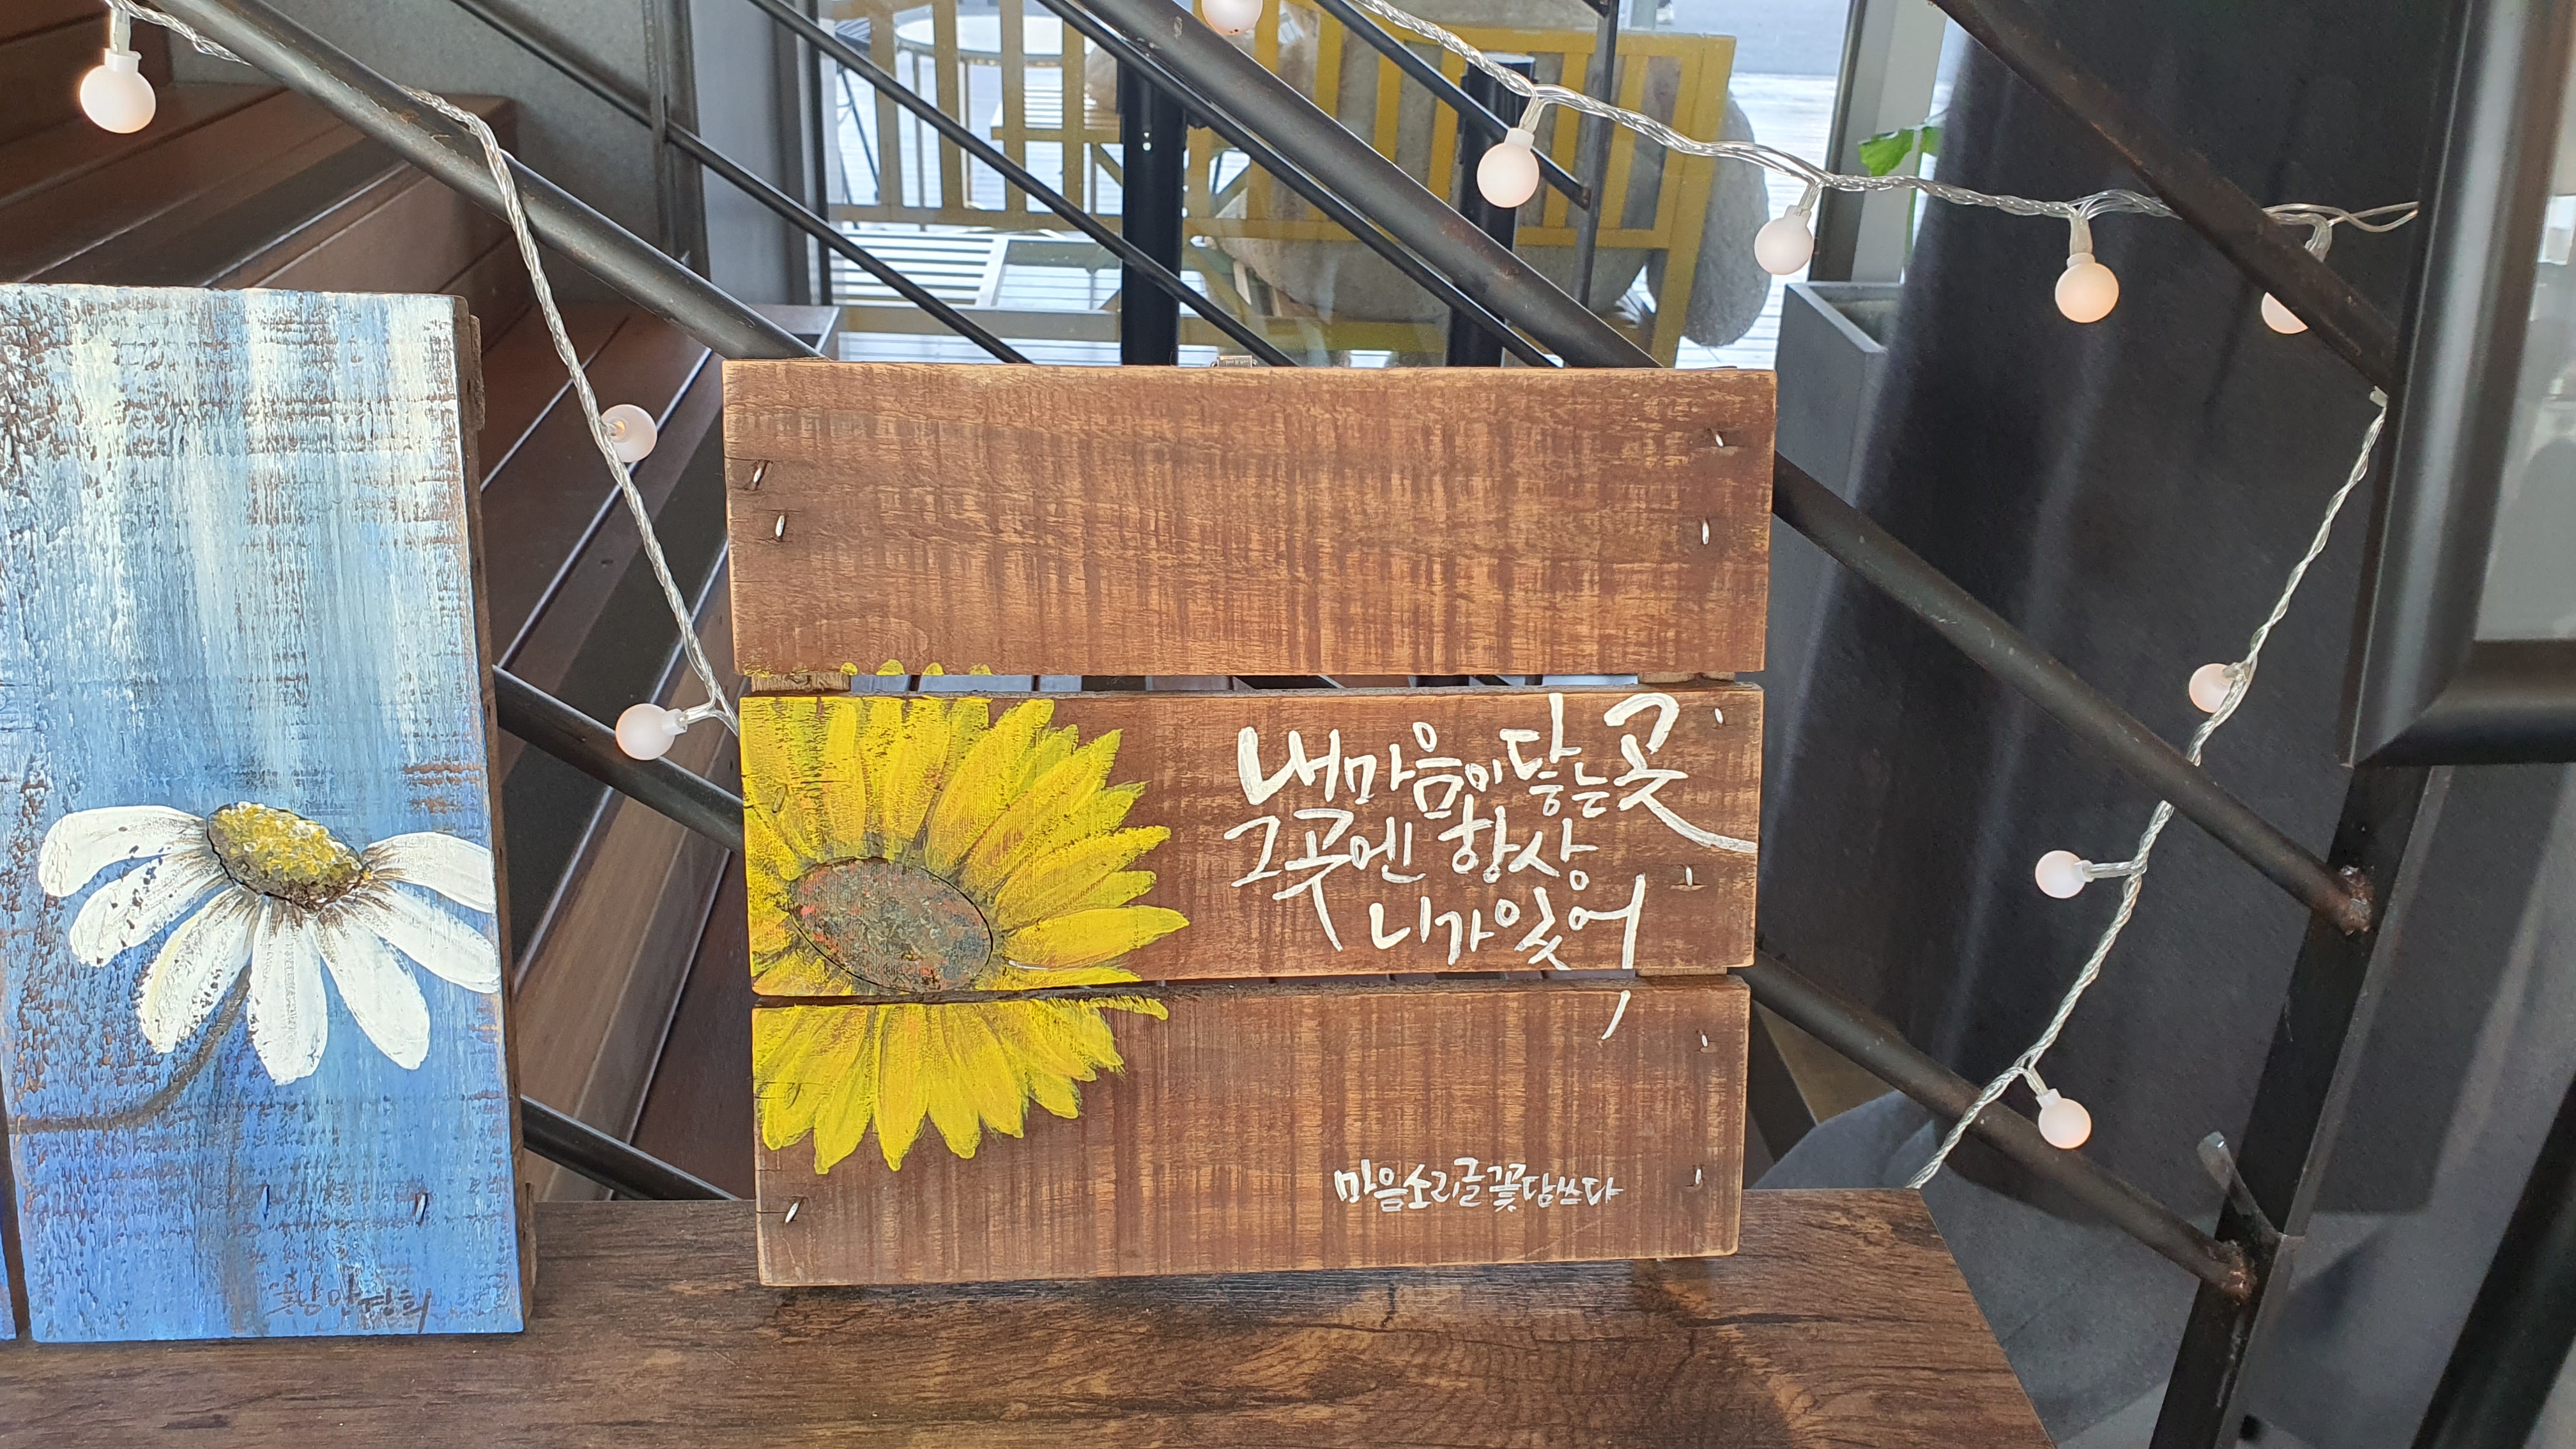 내 마음이 닿는 곳
그 곳엔 항상
니가 있어
마음소리글꽃담쓰다